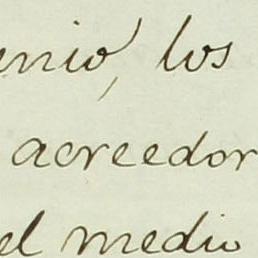 enio, los
acreedor
el medio